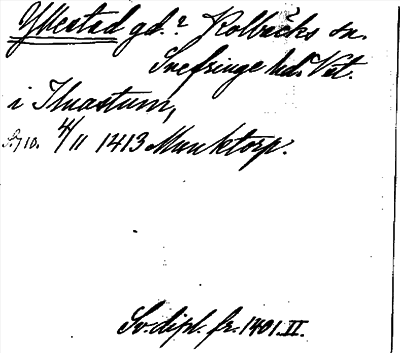 Yllestad gd.? Kolbäcks sn.
Snefringe hd. Vst.
i Ilnastum,
S. 710. 4/11 1413 Munktorp.
Sv. dipl. fr. 1401. II.